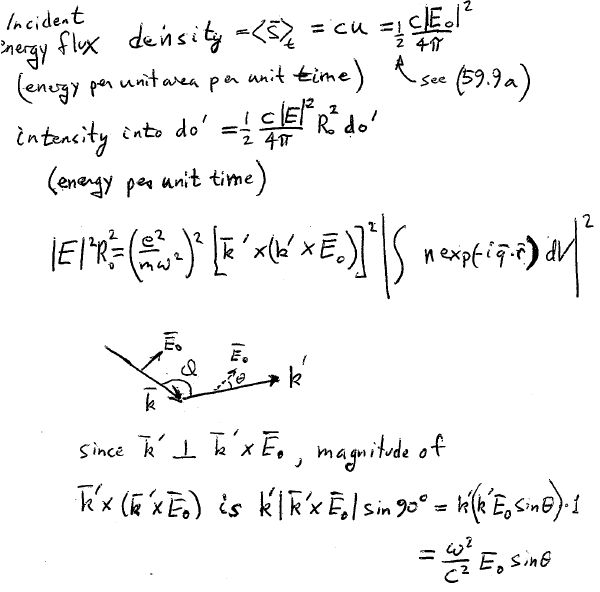 Incident
energy flux density = <S̄>ₜ = cu = ½ c|E₀|²/4π
(energy per unit area per unit time) see (59.9a)
intensity into do' = ½ c|E|²/4π R₀² do'
(energy per unit time)
|E|²R₀² = (e²/mω²)² [k̄' × (k' × Ē₀)]² |∫ n exp(-i q̄·r̄) dV|²
Ē₀ Ē₀
k̄ θ k'
since k̄' ⊥ k̄' × Ē₀, magnitude of
k̄' × (k̄' × Ē₀) is k'|k̄' × Ē₀| sin 90° = k'(k'E₀ sinθ)·1
= ω²/c² E₀ sinθ